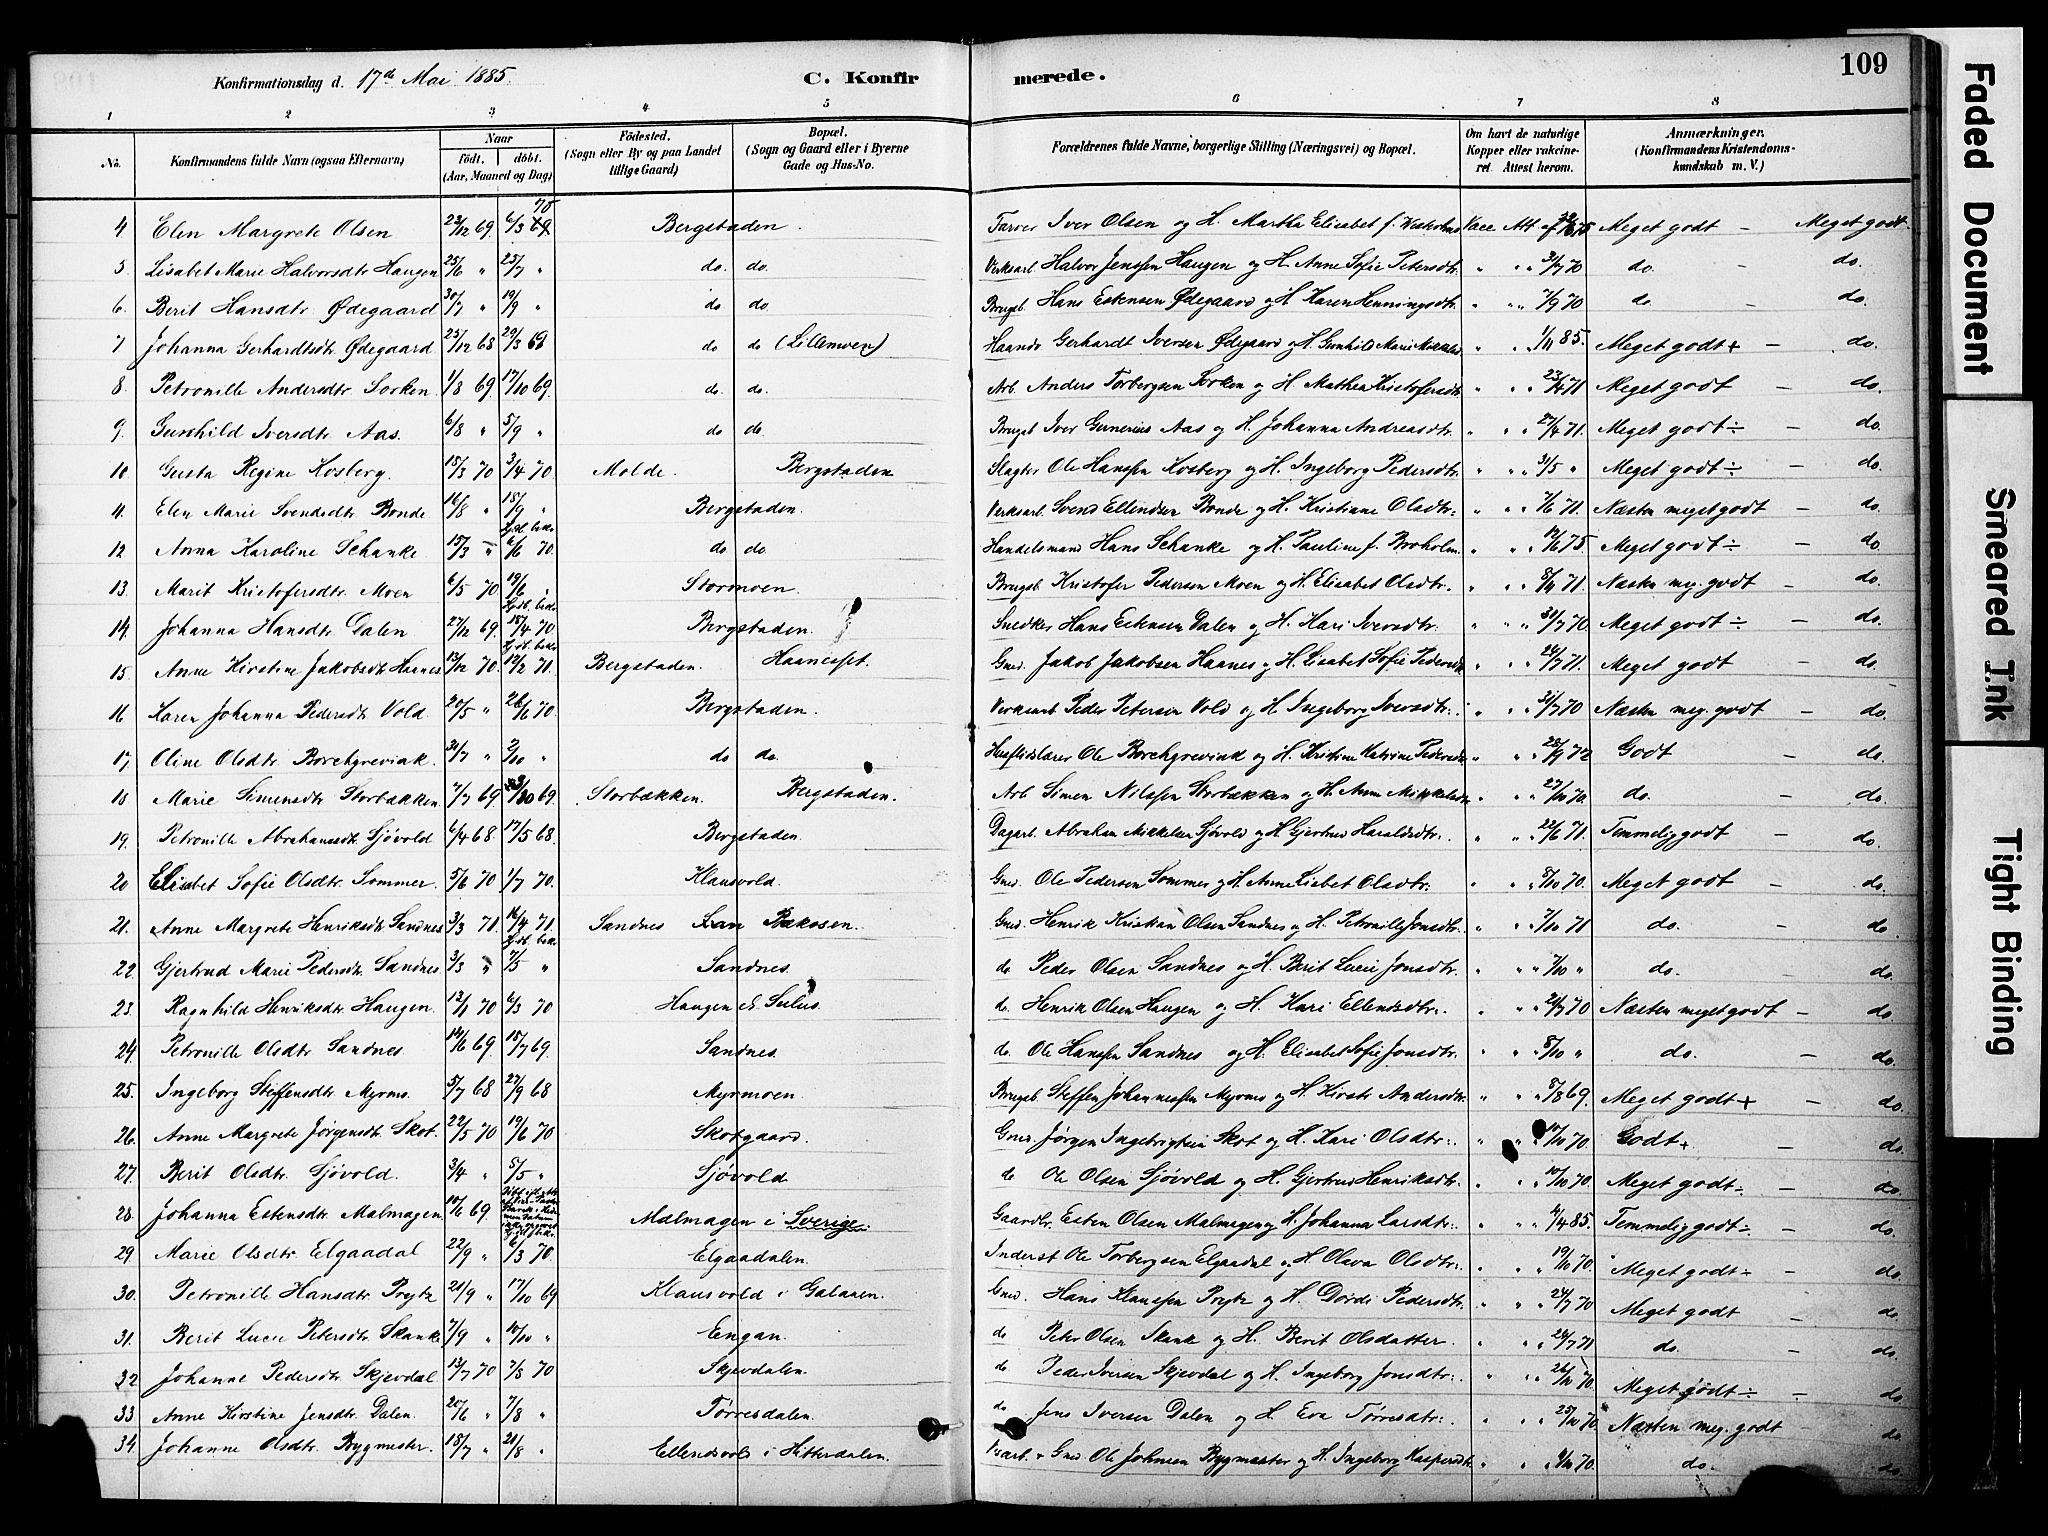 Konfirmationsdag d. 17de Mai 1885.
C. Konfirmerede.
109
1 2 3 4 5 6 7 8
No. Konfirmandens fulde Navn (ogsaa Efternavn) Naar født, døbt. (Aar, Maaned og Dag) Fødested. (Sogn eller By og paa Landet tillige Gaard) Bopæl. (Sogn og Gaard eller i Byerne Gade og Hus-No. Forældrenes fulde Navne, borgerlige Stilling (Næringsvei) og Bopæl. Om havt de naturlige Kopper eller vakcineret. Attest herom. Anmærkninger. (Konfirmandens Kristendomskundskab m. V.)
4 Elen Margrete Olsen 23/12 69. 6/3 70 Bergstaden Farver Iver Olsen og H. Martha Elisabet f. Vacc Att af Meget godt – Meget godt.
5. Lisabet Marie Halvorsdtr Haugen 25/6 " 25/7 " do. do. Verksarb. Halvor Jenssen Haugen og H. Anne Sofie Petersdtr. " " 31/7 70 do. – do.
6. Berit Hansdtr Ødegaard 30/7 " 19/9 " do do. Brugsb. Hans Estensen Ødegaard og H Karen Henningsdtr. " " 7/9 70 do – do.
7 Johanna Gerhardtsdtr Ødegaard. 25/12 68 29/3 69 do do (Lillemoen) Haandv Gerhardt Iversen Ødegaard og H. Gunhild Marie " " 1/4 85. Meget godt+ – do.
8. Petronille Andersdtr Sorken 1/8 69. 17/10 69. do. do. Arb. Anders Torbergsen Sorken og H Mathea Kristofersdtr. " " 23/4 71 Meget godt – do.
9. Gunhild Iversdtr Aas. 6/8 " 5/9 " do do. Brugsb Iver Gunerius Aas og H. Johanna Andreasdtr. " " 27/4 71. Meget godt÷ – do.
10. Gusta Regine Kosberg. 15/3 70 3/4 70. Molde. Bergstaden Slagter Ole Hanssen Kosberg og H. Ingeborg Pedersdtr " " 31/5 " Meget godt÷ – do.
11. Elen Marie Svendsdtr Bonde 16/8 " 18/9 " Bergstaden. Verksarb. Svend Ellendsen Bonde og H. Kristiane Olsdtr: " " 7/6 71. Næsten meget godt – do
12 Anna Karoline Schanke 15/3 " 6/6 70. do do. Handelsmand Hans Schanke og H. Pauline f. Broholm. " " 12/6 75 Meget godt÷ – do.
13. Marit Kristofersdtr. Moen 6/5 70 19/6 " Stormoen. Brugsb. Kristofer Pedersen Moen og H. Elisabet Olsdtr. " " 8/4 71. Næsten meg. godt – do.
14. Johanna Hansdtr Dalen 27/12 69. 18/4 70 Bergstaden. Snedker Hans Estensen Dalen og H. Kari Iversdtr. " " 31/7 70. Meget godt÷ – do.
15. Anne Kirstine Jakobsdtr Haanes 13/12 70. 19/2 71. Bergstaden. Haaneset. Gmd. Jakob Jakobsen Haanes og H. Lisabet Sofie Pedersdtr " " 24/7 71. Meget godt – do.
16 Karen Johanna Pedersdtr Vold. 20/5 " 26/6 70. Bergstaden. Verksarb Peder Petersen Vold og H. Ingeborg Iversdtr. " " 31/7 70 Næsten meg. godt – do.
17, Oline Olsdtr Borchgrevink. 31/7 " 2/10 " do do. Husflidslærer Ole Borchgrevink og H. Kristine Katrine Pedersdtr " " 28/9 72 Godt – do.
18 Marie Simensdtr Storbækken 7/7 69 3/10 69. Storbækken. Bergstaden. Arb Simen Nilssen Storbækken og H. Anne Mikkelsdtr " " 27/10 70. do. – do.
19. Petronille Abrahamsdtr Sjøvold 6/4 68. 17/5 68. Bergstaden. Dagarb. Abraham Mikkelsen Sjøvold og H Gjertrud Haraldsdtr: " " 22/6 71. Temmelig godt – do.
20 Elisabet Sofie Olsdtr. Sommer. 5/6 70 1/7 70. Klausvold. Gmd. Ole Pedersen Sommer og H. Anne Lisbet Olsdtr. " " 8/10 70. Meget godt – do.
21. Anne Margrete Henriksdtr Sandnes 3/3 71. 16/4 71. Sandnes Bakosen. Gmd. Henrik Kristian Olsen Sandnes og H. Petronille Jonsdtr. " " 7/10 71 do. – do
22. Gjertrud Marie Pedersdtr Sandnes 3/3 " 7/5 " Sandnes. do Peder Olsen Sandnes og H. Berit Lucie Jonsdtr. " " 7/10 " do. – do.
23. Ragnhild Henriksdtr Haugen. 13/1 70 6/3 70 Haugen v. Sulus. do. Henrik Olsen Haugen og H. Kari Ellendsdtr. " " 24/7 70 Næsten meget godt – do
24. Petronille Olsdtr Sandnes 14/6 69. 18/7 69. Sandnes. do. Ole Hanssen Sandnes og H. Elisabet Sofie Jonsdtr. " " 8/10 " do. – do.
25. Ingeborg Steffensdtr Myrmo. 5/7 68 27/9 68 Myrmoen. Brugsb. Steffen Johannessen Myrmo og H. Kirsti Andersdtr. " " 8/8 69. Meget godt+ – do.
26. Anne Margrete Jørgensdtr. Skot. 22/5 70 19/6 70 Skotgaard. Gmd. Jørgen Ingebrigtsen Skot og H. Kari Olsdtr. " " 10/10 70. Godt+ – do.
27. Berit Olsdtr. Sjøvold. 3/4 " 5/5 " Sjøvold do Ole Olsen Sjøvold og H. Gjertrud Henriksdtr. " " 10/10 70. Meget godt÷ – do.
28. Johanna Estensdtr Malmagen. 10/6 69. Malmagen i Sverige. Gaardbr. Esten Olsen Malmagen og H. Johanna Larsdtr: " " 21/4 85. Temmelig godt÷ do.
29. Marie Olsdtr Elgaadal 22/9 " 6/3 70. Elgaadalen. Inderst Ole Torbergsen Elgaadal og H. Olava Olsdtr: " " 19/10 70. Meget godt÷ – do.
30. Petronille Hansdtr Prytz 21/9 " 17/10 69 Klausvold i Galaaen. Gmd. Hans Klaussen Prytz og H. Dordi Pedersdtr. " " 24/7 70 Meget godt – do.
31. Berit Lucie Petersdtr. Skanke 7/9 " 10/10 " Engan. do Peter Olsen Skank og H. Berit Olsdatter. " " 24/7 71 do. – do.
32 Johanne Pedersdtr Skjevdal 13/7 70 7/8 70 Skjevdalen. do Peder Iversen Skjevdal og H. Ingeborg Jonsdtr: " " 26/10 70. Meget godt÷ – do
33 Anne Kirstine Jensdtr. Dalen. 20/6 " 7/8 " Tørresdalen. do Jens Iversen Dalen og H. Eva Tørresdtr: " " 25/10 70. Næsten meg. godt do.
34. Johanne Olsdtr. Bygmester. 18/7 " 21/8 " Ellendsvold i Hitterdalen. Ole Johnsen Bygmester og H. Ingeborg Kaspersdtr. " " 4/10 70. do. do.
Faded Document
Smeared Ink
Tight Binding